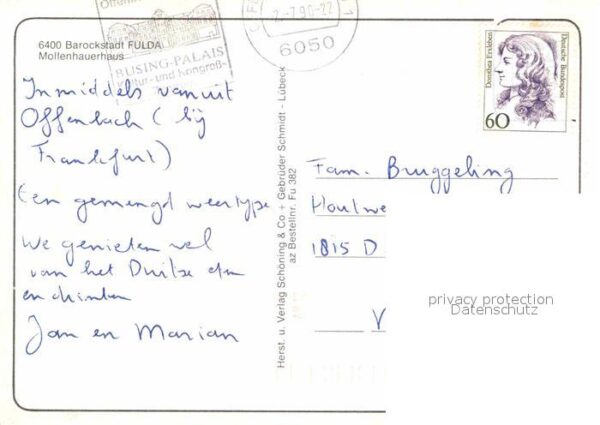 6400 Barockstadt FULDA
Mollenhauerhaus
BÜSING-PALAIS
Kultur- und Kongreß-
2.-7.90-22
6050
Dorothea Erxleben
Deutsche Bundespost
60
Inmiddels vanuit
Offenbach (bij
Frankfurt)
(en gemengd weertype
We genieten wel
van het Duitse eten
en drinken
Jan en Marian
Herst. u. Verlag Schöning & Co + Gebrüder Schmidt - Lübeck
az Bestellnr. Fu 382
Fam. Bruggeling
Houtwe
1815 D
V
privacy protection
Datenschutz